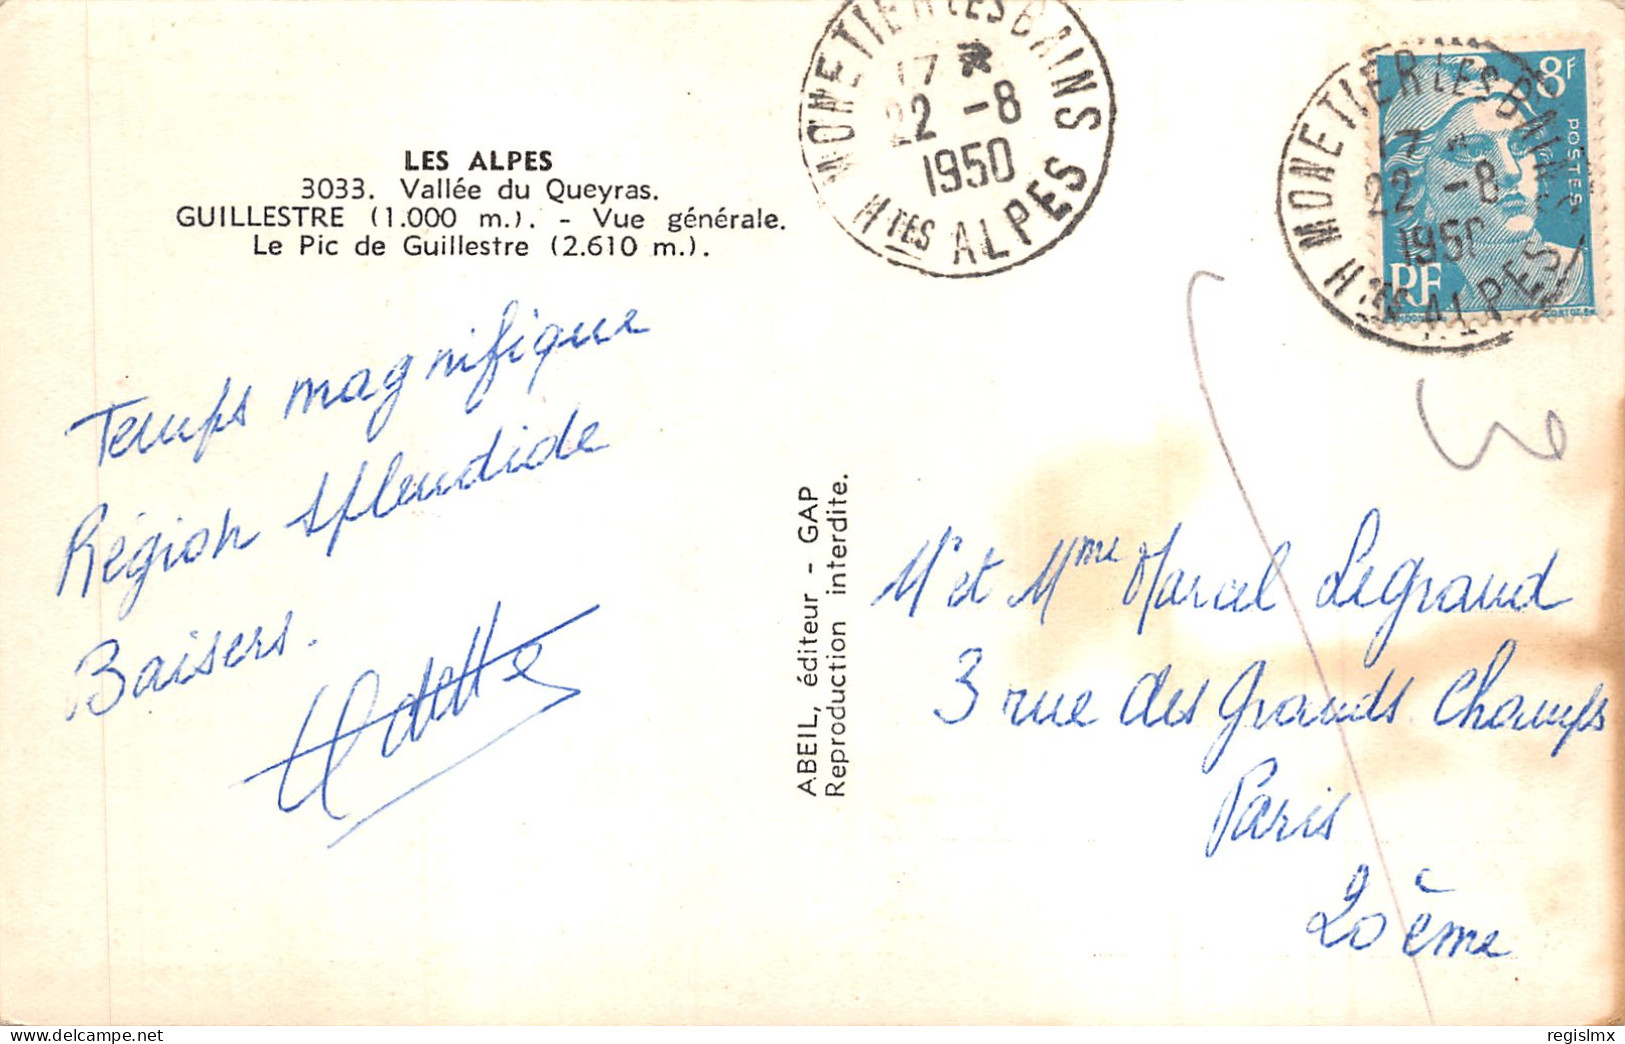 LES ALPES
3033. Vallée du Queyras.
GUILLESTRE (1.000 m.). - Vue générale.
Le Pic de Guillestre (2.610 m.).
MONETIER LES BAINS
17 *
22 -8
1950
HTES ALPES
MONETIER LES BAINS
17 *
22 -8
1950
HTES ALPES
8F
POSTES
RF
Temps magnifique
Région splendide
Baisers.
Odette
ABEIL, éditeur - GAP
Reproduction interdite.
Mr et Mme Marcel Legrand
3 rue des Grands Champs
Paris
20 ème
delcampe.net
Delcampe - The Collectors Marketplace
regislmx